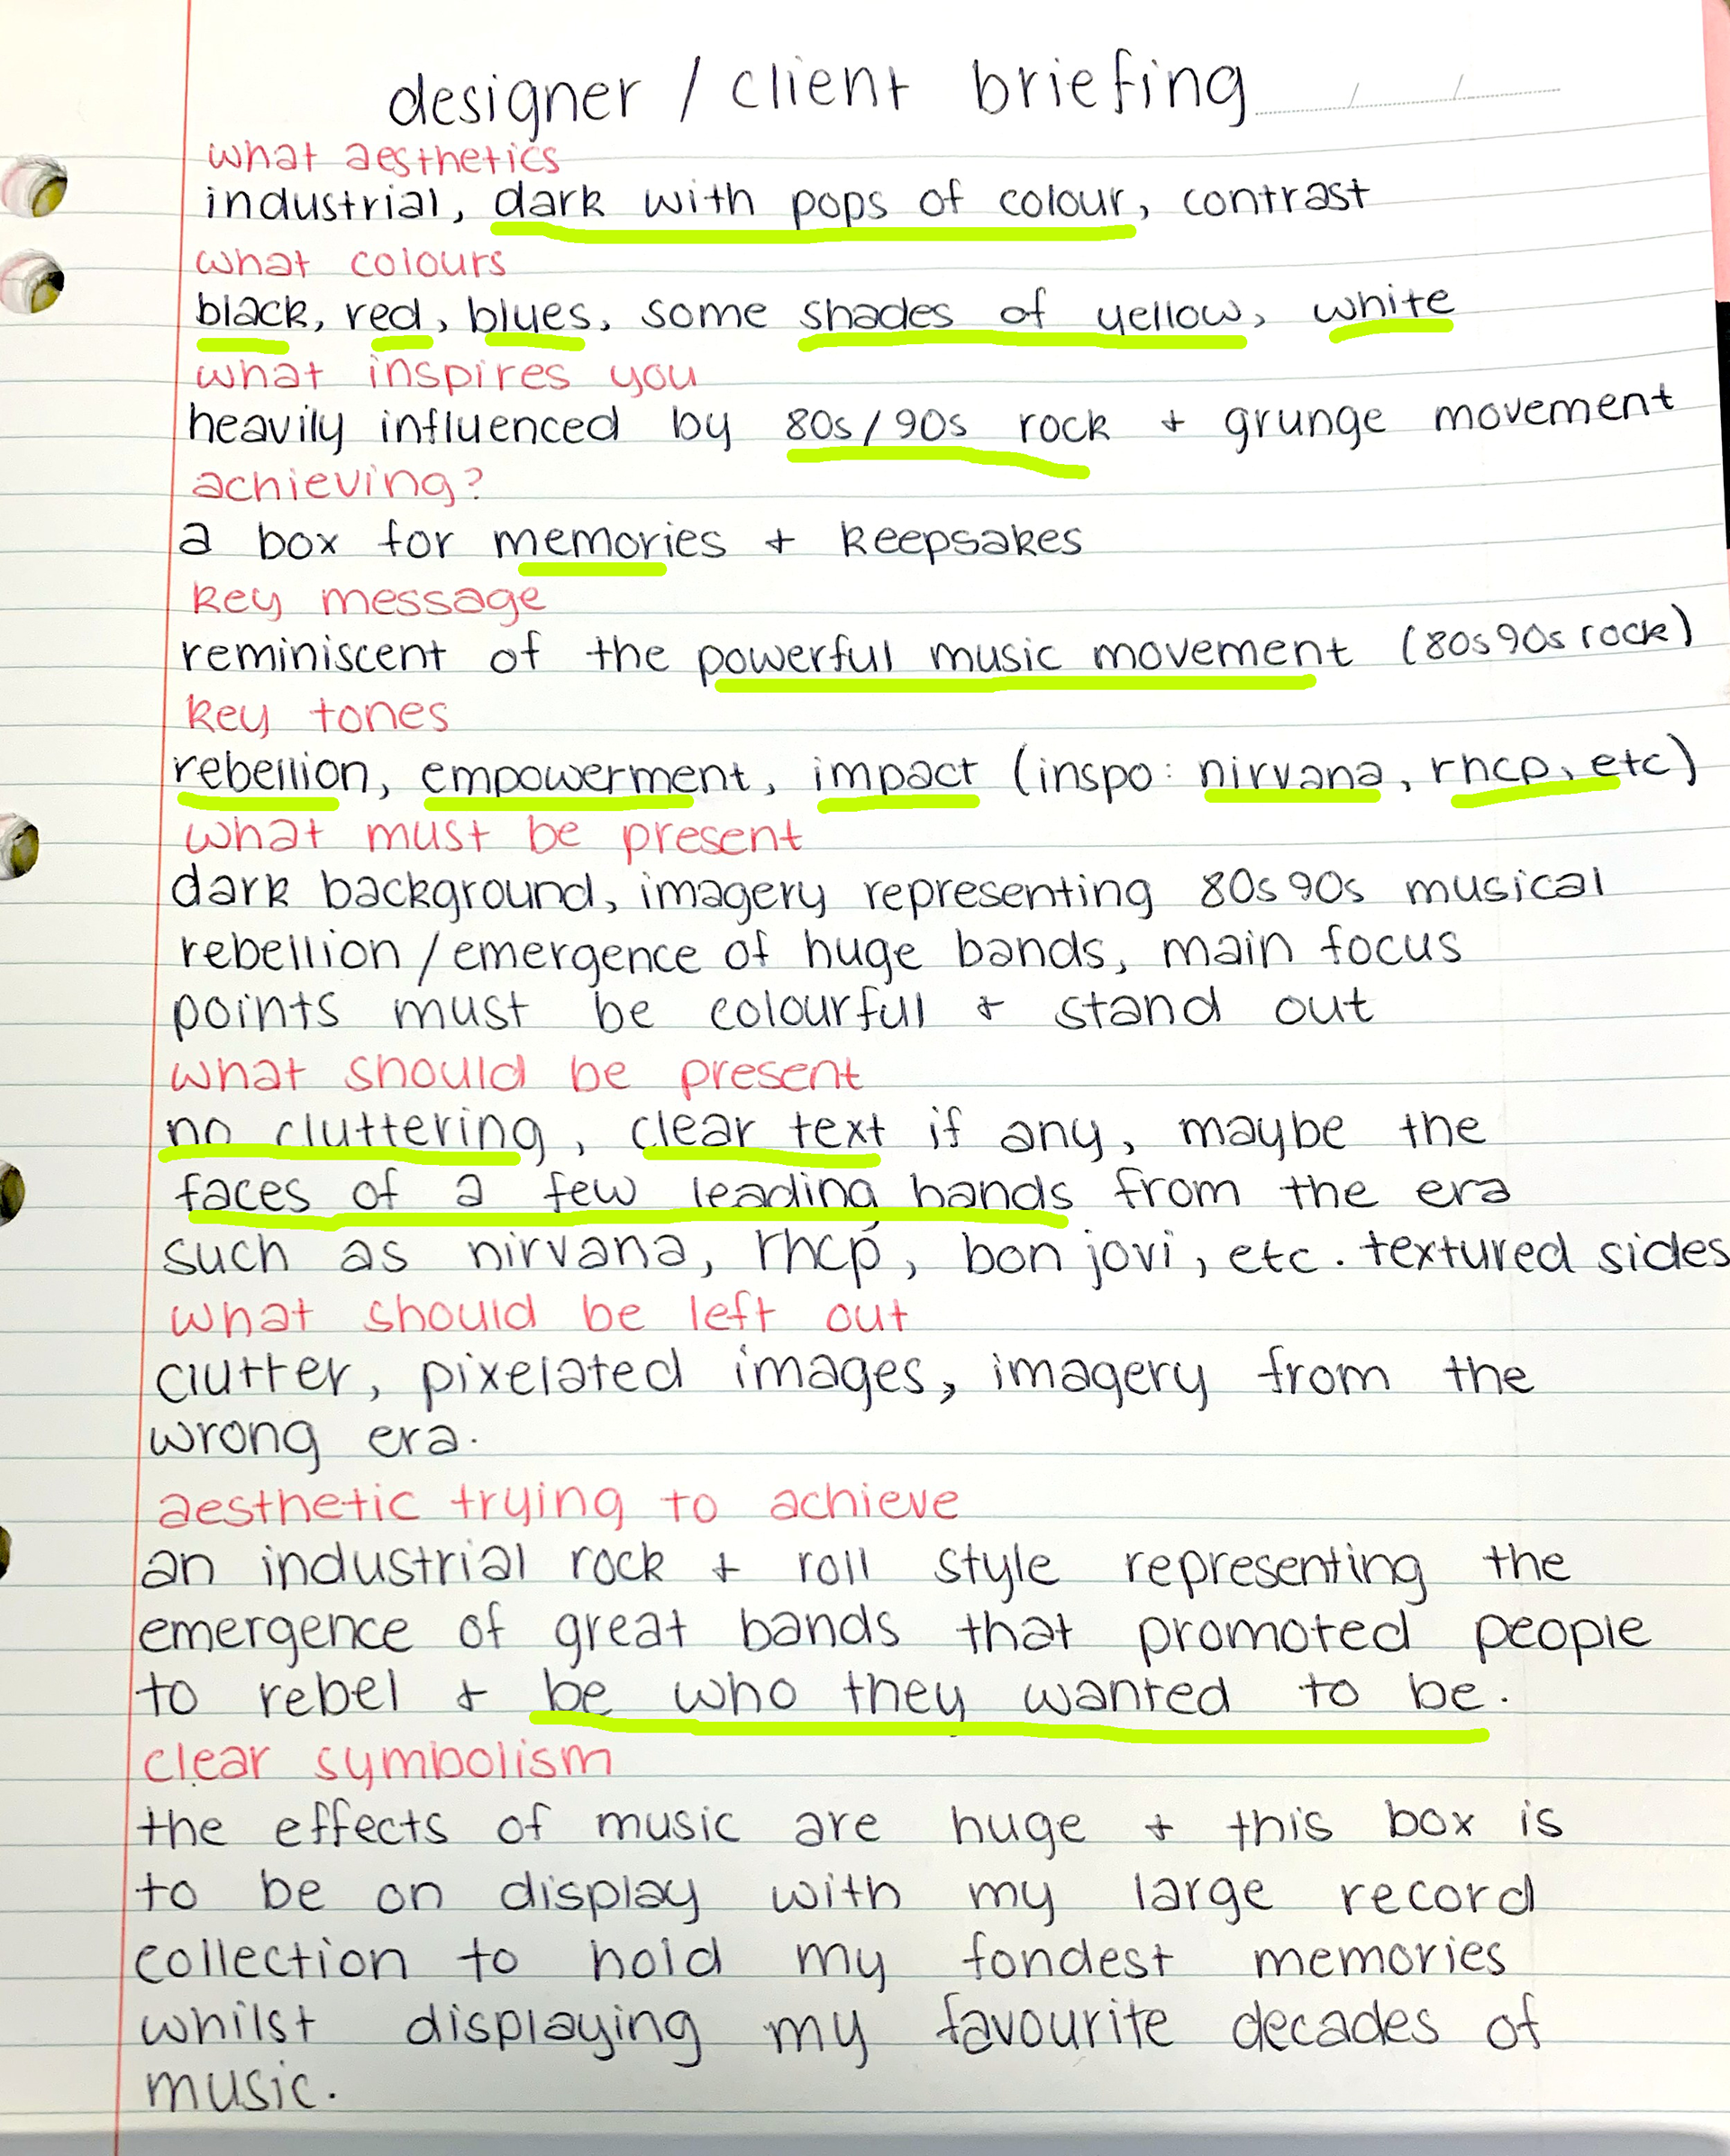 designer / client briefing
what aesthetics
industrial, dark with pops of colour, contrast
what colours
black, red, blues, some shades of yellow, white
what inspires you
heavily influenced by 80s/90s rock + grunge movement
achieving?
a box for memories + keepsakes
key message
reminiscent of the powerful music movement (80s 90s rock)
key tones
rebellion, empowerment, impact (inspo: nirvana, rhcp, etc)
what must be present
dark background, imagery representing 80s 90s musical
rebellion/emergence of huge bands, main focus
points must be colourful + stand out
what should be present
no cluttering, clear text if any, maybe the
faces of a few leading bands from the era
such as nirvana, rhcp, bon jovi, etc. textured sides
what should be left out
clutter, pixelated images, imagery from the
wrong era.
aesthetic trying to achieve
an industrial rock + roll style representing the
emergence of great bands that promoted people
to rebel + be who they wanted to be.
clear symbolism
the effects of music are huge + this box is
to be on display with my large record
collection to hold my fondest memories
whilst displaying my favourite decades of
music.